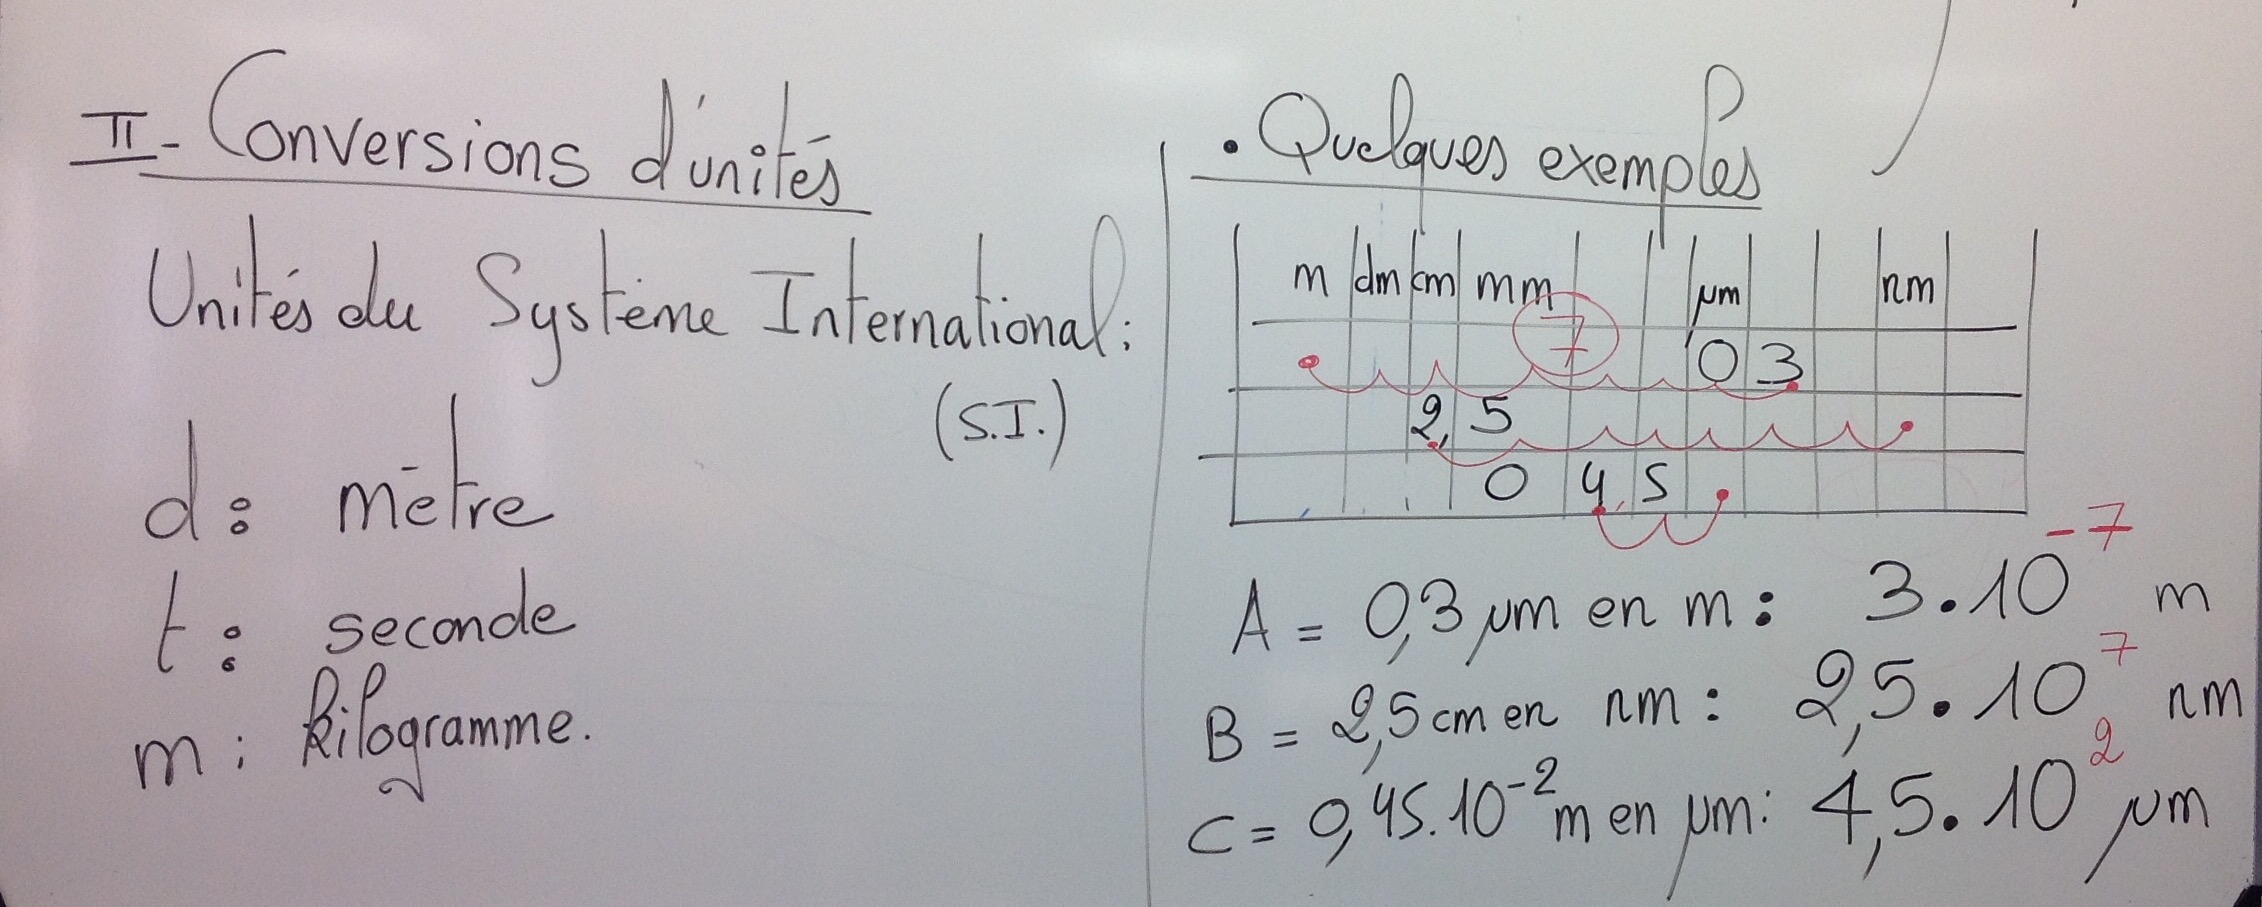 II - Conversions d'unités
Unités du Système International :
(S.I.)
d : mètre
t : seconde
m : kilogramme.
• Quelques exemples
m dm cm mm µm nm
7
0 3
2, 5
0 4, 5
A = 0,3 µm en m : 3.10⁻⁷ m
B = 2,5 cm en nm : 2,5.10⁷ nm
C = 0,45.10⁻² m en µm : 4,5.10² µm